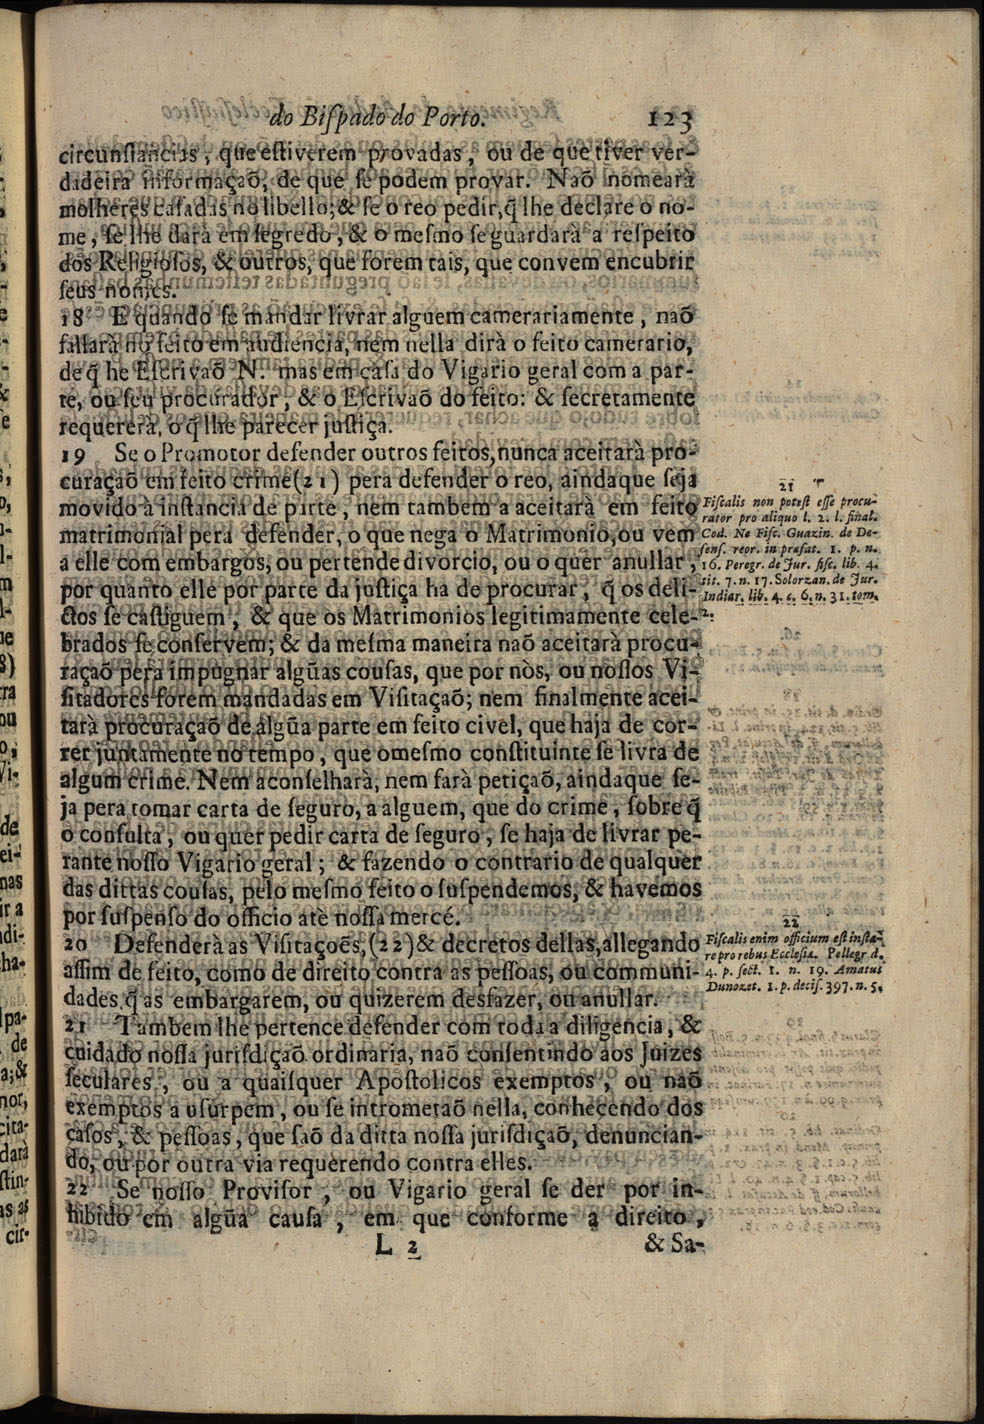 do Biſpado do Porto. 123
circunſtancias, que eſtiverem provadas, ou de que tiver ver-
dadeira informaçaõ, de que ſe podem provar. Naõ nomearà
molheres caſadas no libello; & ſe o reo pedir, q̃ lhe declare o no-
me, ſe lhe darà em ſegredo, & o meſmo ſe guardarà a reſpeito
dos Religioſos, & outros, que forem tais, que convem encubrir
ſeus nomes.
18 E quando ſe mandar livrar alguem camerariamente, naõ
fallarà no feito em audiencia, nem nella dirà o feito camerario,
de q̃ he Eſcrivaõ N. mas em caſa do Vigario geral com a par-
te, ou ſeu procurador, & o Eſcrivaõ do feito: & ſecretamente
requererà, o q̃ lhe parecer juſtiça.
19 Se o Promotor defender outros feitos, nunca aceitarà pro-
curaçaõ em feito crime (21) pera defender o reo, aindaque ſeja
movido à inſtancia de parte, nem tambem a aceitarà em feito
matrimonial pera defender, o que nega o Matrimonio, ou vem
a elle com embargos, ou pertende divorcio, ou o quer anullar,
por quanto elle por parte da juſtiça ha de procurar, q̃ os deli-
ctos ſe caſtiguem, & que os Matrimonios legitimamente cele-
brados ſe conſervem; & da meſma maneira naõ aceitarà procu-
raçaõ pera impugnar algũas couſas, que por nòs, ou noſſos Vi-
ſitadores forem mandadas em Viſitaçaõ; nem finalmente acei-
tarà procuraçaõ de algũa parte em feito civel, que haja de cor-
rer juntamente no tempo, que o meſmo conſtituinte ſe livra de
algum crime. Nem aconſelharà, nem farà petiçaõ, aindaque ſe-
ja pera tomar carta de ſeguro, a alguem, que do crime, ſobre q̃
o conſulta, ou quer pedir carta de ſeguro, ſe haja de livrar pe-
rante noſſo Vigario geral; & fazendo o contrario de qualquer
das dittas couſas, pelo meſmo feito o ſuſpendemos, & havemos
por ſuſpenſo do officio atè noſſa mercé.
20 Defenderà as Viſitaçoẽs, (22) & decretos dellas, allegando
aſſim de feito, como de direito contra as peſſoas, ou communi-
dades, q̃ as embargarem, ou quizerem desfazer, ou anullar.
21 Tambem lhe pertence defender com toda a diligencia, &
cuidado noſſa juriſdiçaõ ordinaria, naõ conſentindo aos Juizes
ſeculares, ou a quaiſquer Apoſtolicos exemptos, ou naõ
exemptos a uſurpem, ou ſe intrometaõ nella, conhecendo dos
caſos, & peſſoas, que ſaõ da ditta noſſa juriſdiçaõ, denuncian-
do, ou por outra via requerendo contra elles.
22 Se noſſo Proviſor, ou Vigario geral ſe der por in-
hibido em algũa cauſa, em que conforme a direito,
L 2 & Sa-
21
Fiſcalis non poteſt eſſe procu-
rator pro aliquo l. 2. l. final.
Cod. Ne Fiſc. Guazin. de De-
fenſ. reor. in præfat. 1. p. n.
16. Peregr. de Jur. fiſc. lib. 4.
tit. 7. n. 17. Solorzan. de Jur.
Indiar. lib. 4. c. 6. n. 31. tom.
2.
22
Fiſcalis enim officium eſt inſta-
re pro rebus Eccleſiæ. Pellegr d.
4. p. ſect. 1. n. 19. Amatus
Dunozet. 1. p. deciſ. 397. n. 5.